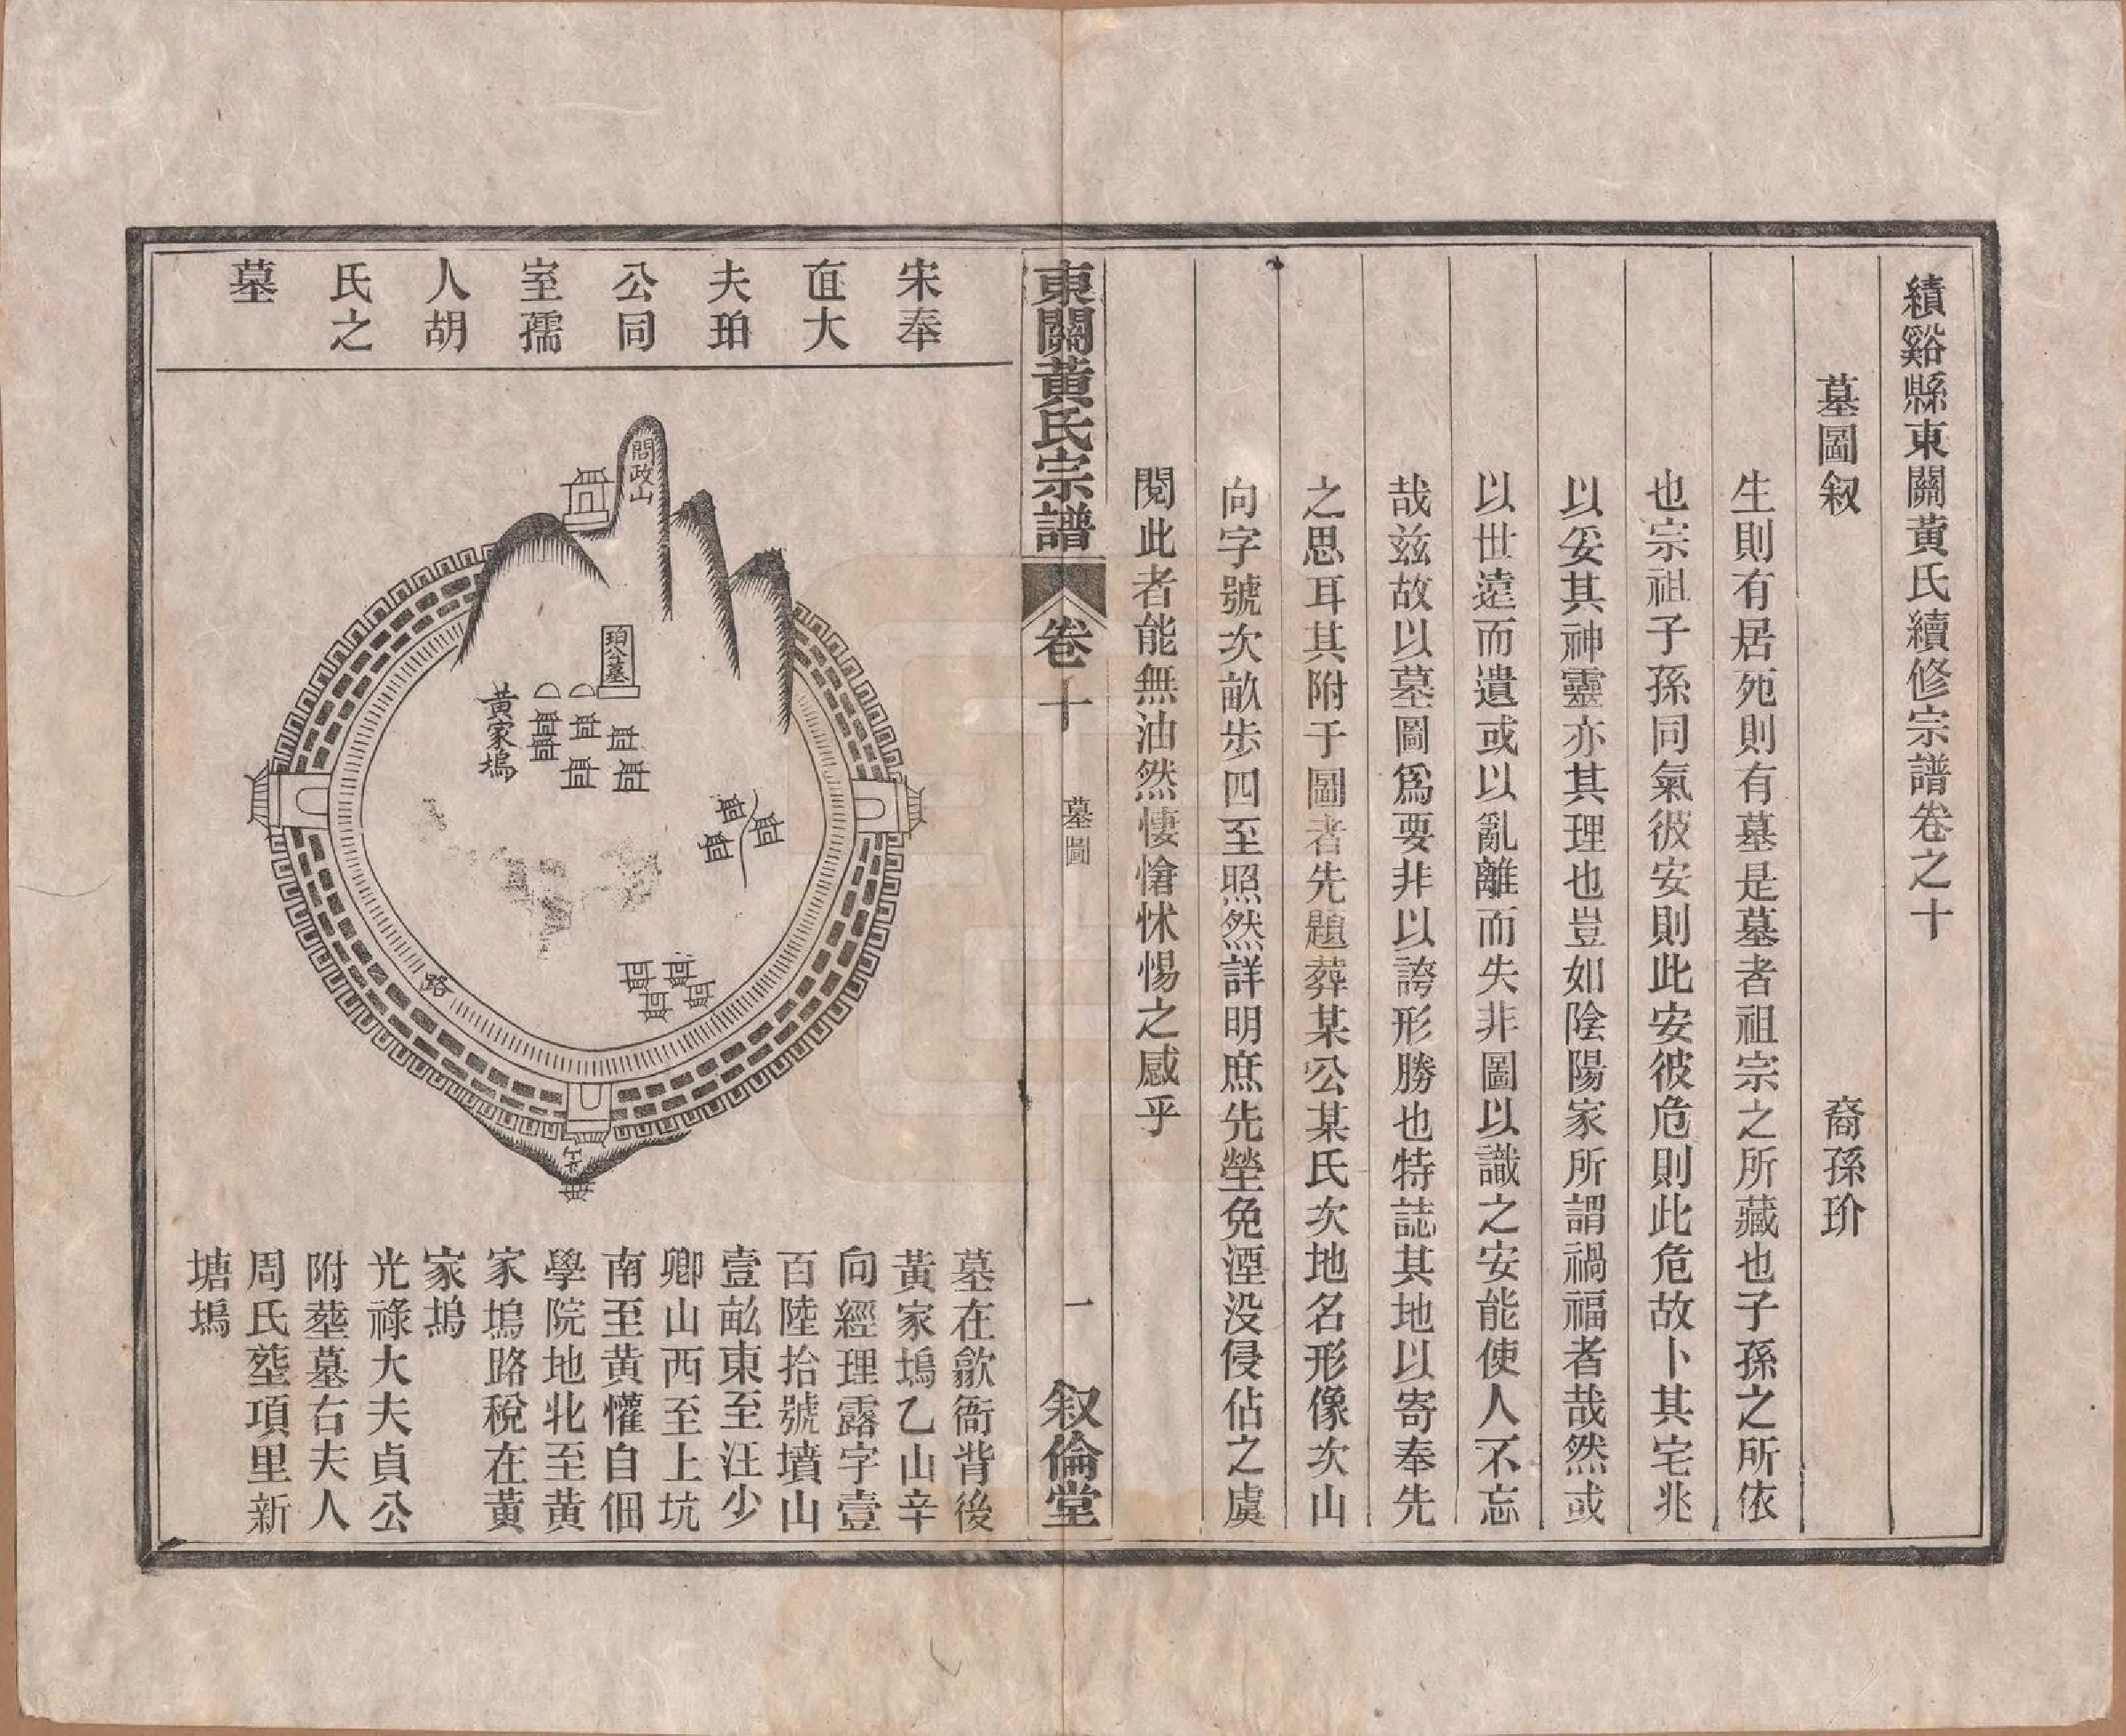 績谿縣東關黃氏續修宗譜卷之十
墓圖叙
裔孫玠
生則有居死則有墓是墓者祖宗之所藏也子孫之所依
也宗祖子孫同氣彼安則此安彼危則此危故卜其宅兆
以妥其神靈亦其理也豈如陰陽家所謂禍福者哉然或
以世遠而遺或以亂離而失非圖以識之安能使人不忘
哉茲故以墓圖爲要非以誇形勝也特誌其地以寄奉先
之思耳其附于圖者先題葬某公某氏次地名形像次山
向字號次畝步四至照然詳明庶先塋免湮没侵佔之虞
閱此者能無油然悽愴怵惕之感乎
東關黃氏宗譜
卷十
墓圖
一
叙倫堂
宋奉
直大
夫珀
公同
室孺
人胡
氏之
墓
問政山
珀公墓
黃家塢
路
墓在歙衙背後
黃家塢乙山辛
向經理露字壹
百陸拾號墳山
壹畝東至汪少
卿山西至上坑
南至黃懽自佃
學院地北至黃
家塢路稅在黃
家塢
光祿大夫貞公
附塟墓右夫人
周氏塟項里新
塘塢